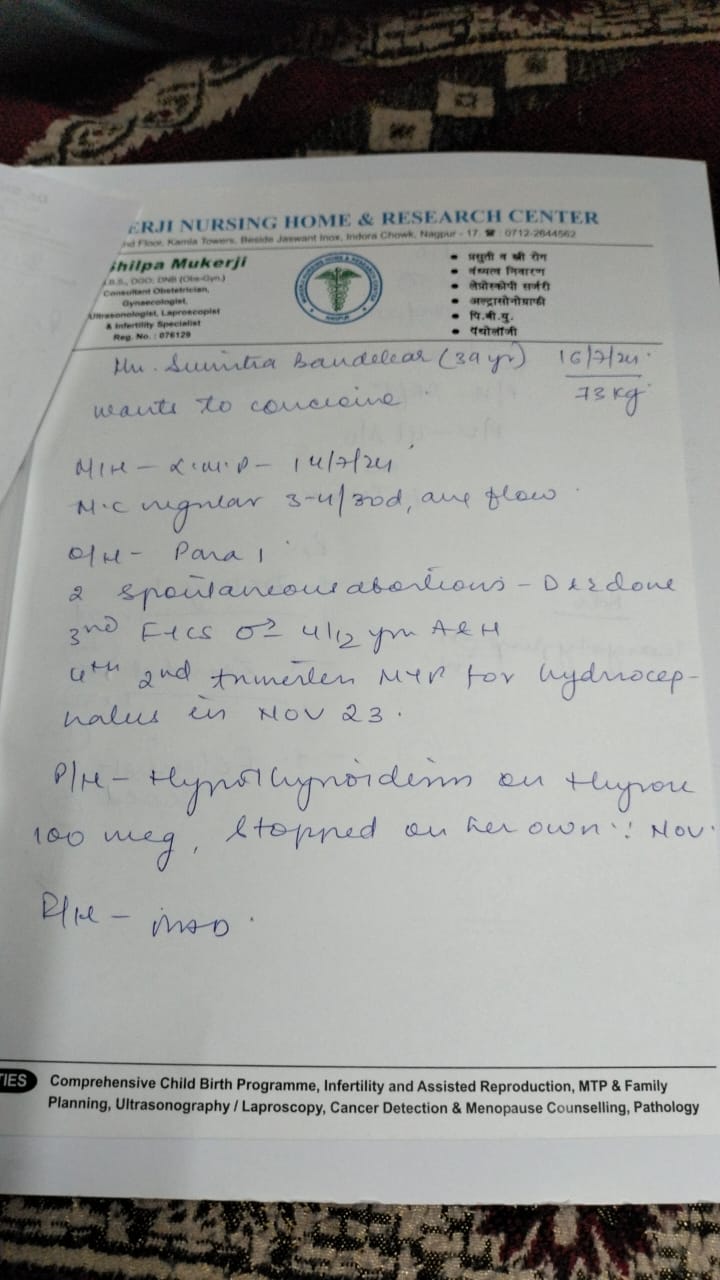 ERJI NURSING HOME & RESEARCH CENTER
nd Floor, Kamla Towers, Beside Jaswant Inox, Indora Chowk, Nagpur - 17. ☎ : 0712-2644562
Shilpa Mukerji
B.S., DGO, DNB (Obs-Gyn.)
Consultant Obstetrician,
Gynaecologist,
Ultrasonologist, Laproscopist
& Infertility Specialist
Reg. No. : 076129
• प्रसुती व स्त्री रोग
• वंध्यत्व निवारण
• लेप्रोस्कोपी सर्जरी
• अल्ट्रासोनोग्राफी
• पि.बी.यु.
• पॅथोलॉजी
(39 yr) 16/7/24
wants to conceive 73 kg
M/H - L.M.P - 14/7/24
M.C regular 3-4/30d, ave flow
O/H - Para 1
2 spontaneous abortions - D&E done
3rd 4 1/2 yr A&H
4th 2nd trimester MTP for hydrocep-
halus in NOV 23.
P/H - Hypothyroidism on
100 mcg, stopped on her own Nov
NAD
TIES Comprehensive Child Birth Programme, Infertility and Assisted Reproduction, MTP & Family
Planning, Ultrasonography / Laproscopy, Cancer Detection & Menopause Counselling, Pathology